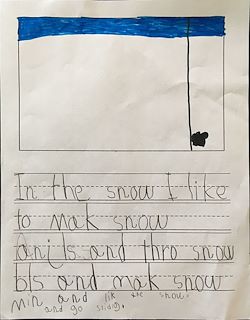 In the snow I like
to mak snow
anjls and thro snow
bls and mak snow
min and lik the snow.
and go sliding.